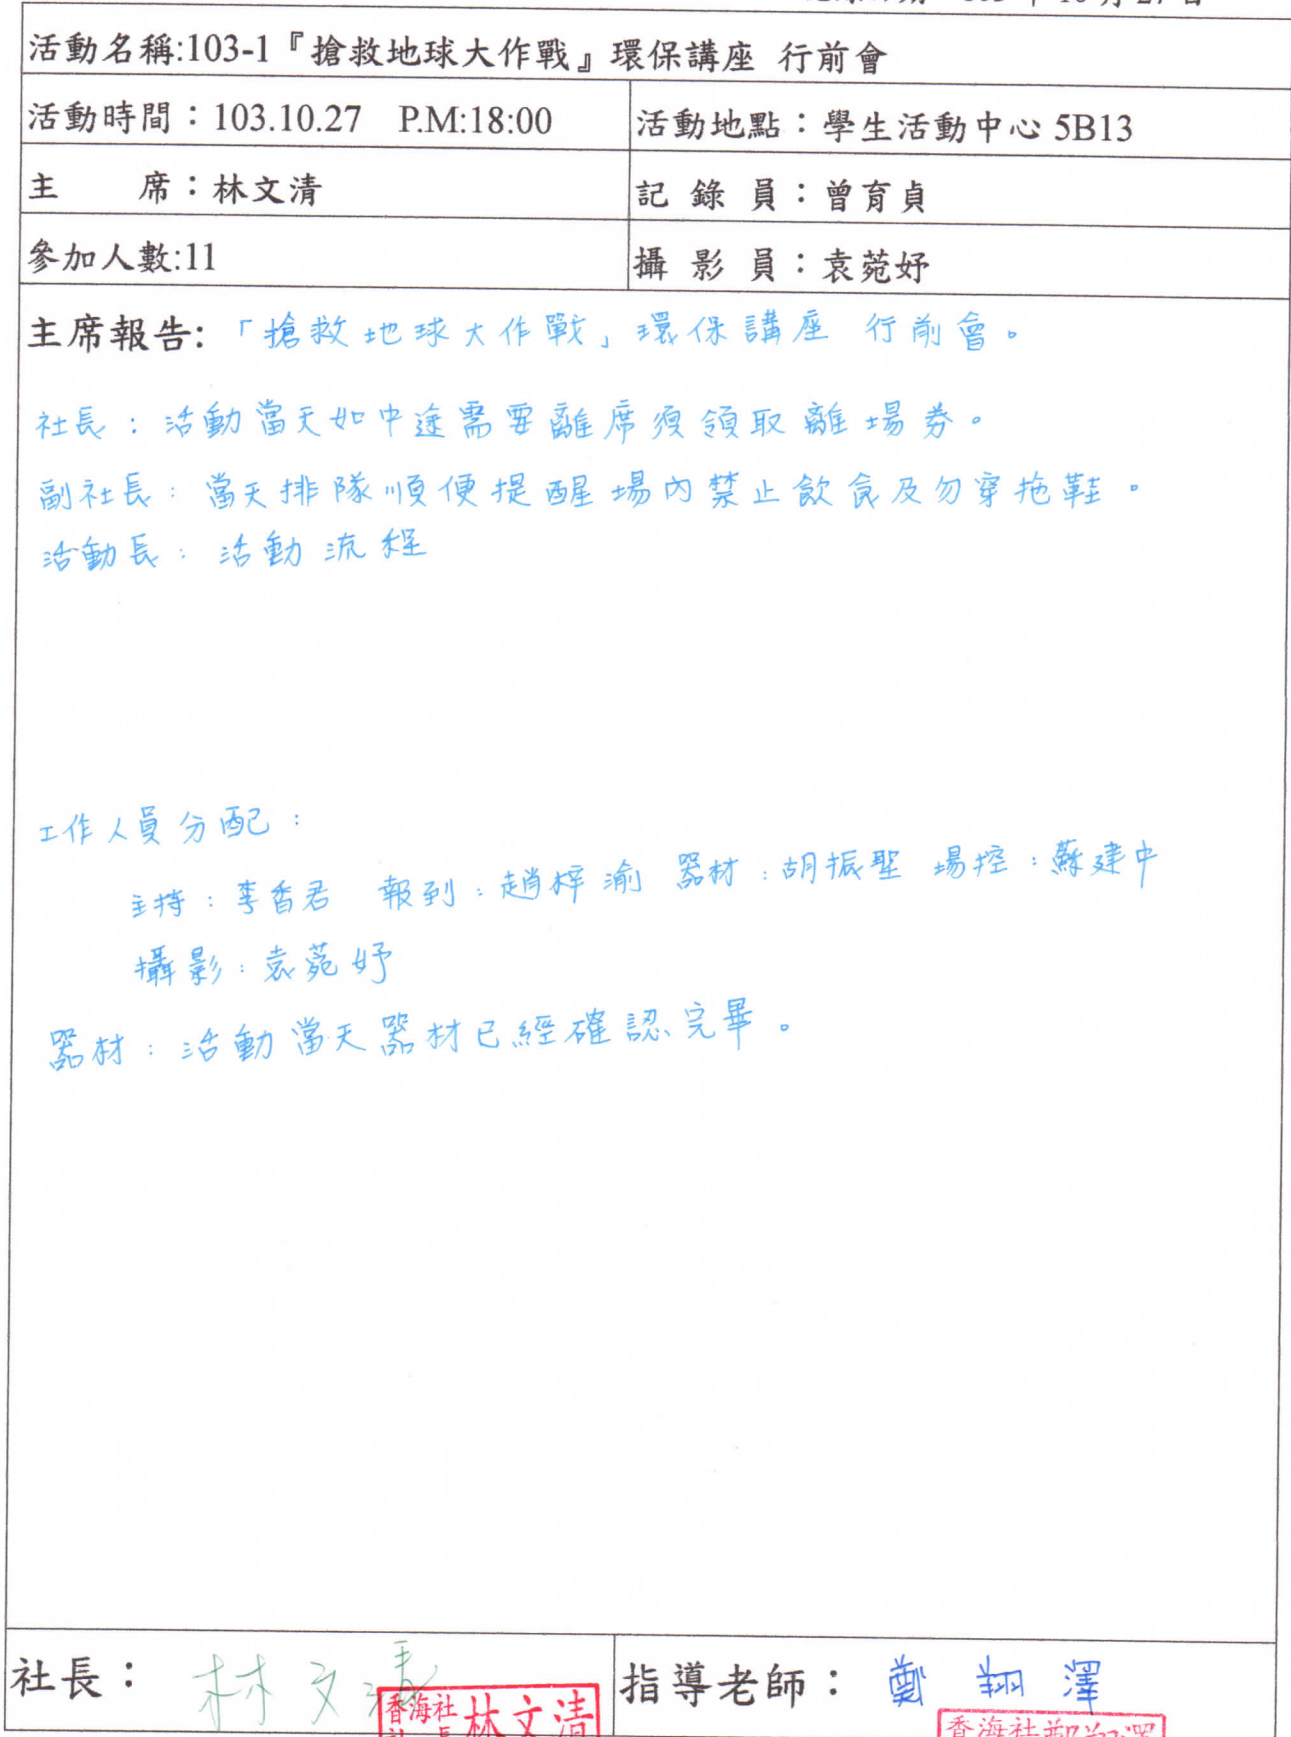 103 年 10 月 27 日
活動名稱:103-1『搶救地球大作戰』環保講座 行前會
活動時間：103.10.27 P.M:18:00
活動地點：學生活動中心 5B13
主 席：林文清
記 錄 員：曾育貞
參加人數:11
攝 影 員：袁菀妤
主席報告:「搶救地球大作戰」環保講座 行前會。
社長：活動當天如中途需要離席須領取離場券。
副社長：當天排隊順便提醒場內禁止飲食及勿穿拖鞋。
活動長：活動流程
工作人員分配：
主持：李香君 報到：趙梓渝 器材：胡振聖 場控：蘇建中
攝影：袁菀妤
器材：活動當天器材已經確認完畢。
社長：林文清
香海社
社長 林文清
指導老師：鄭翔澤
香海社鄭翔澤